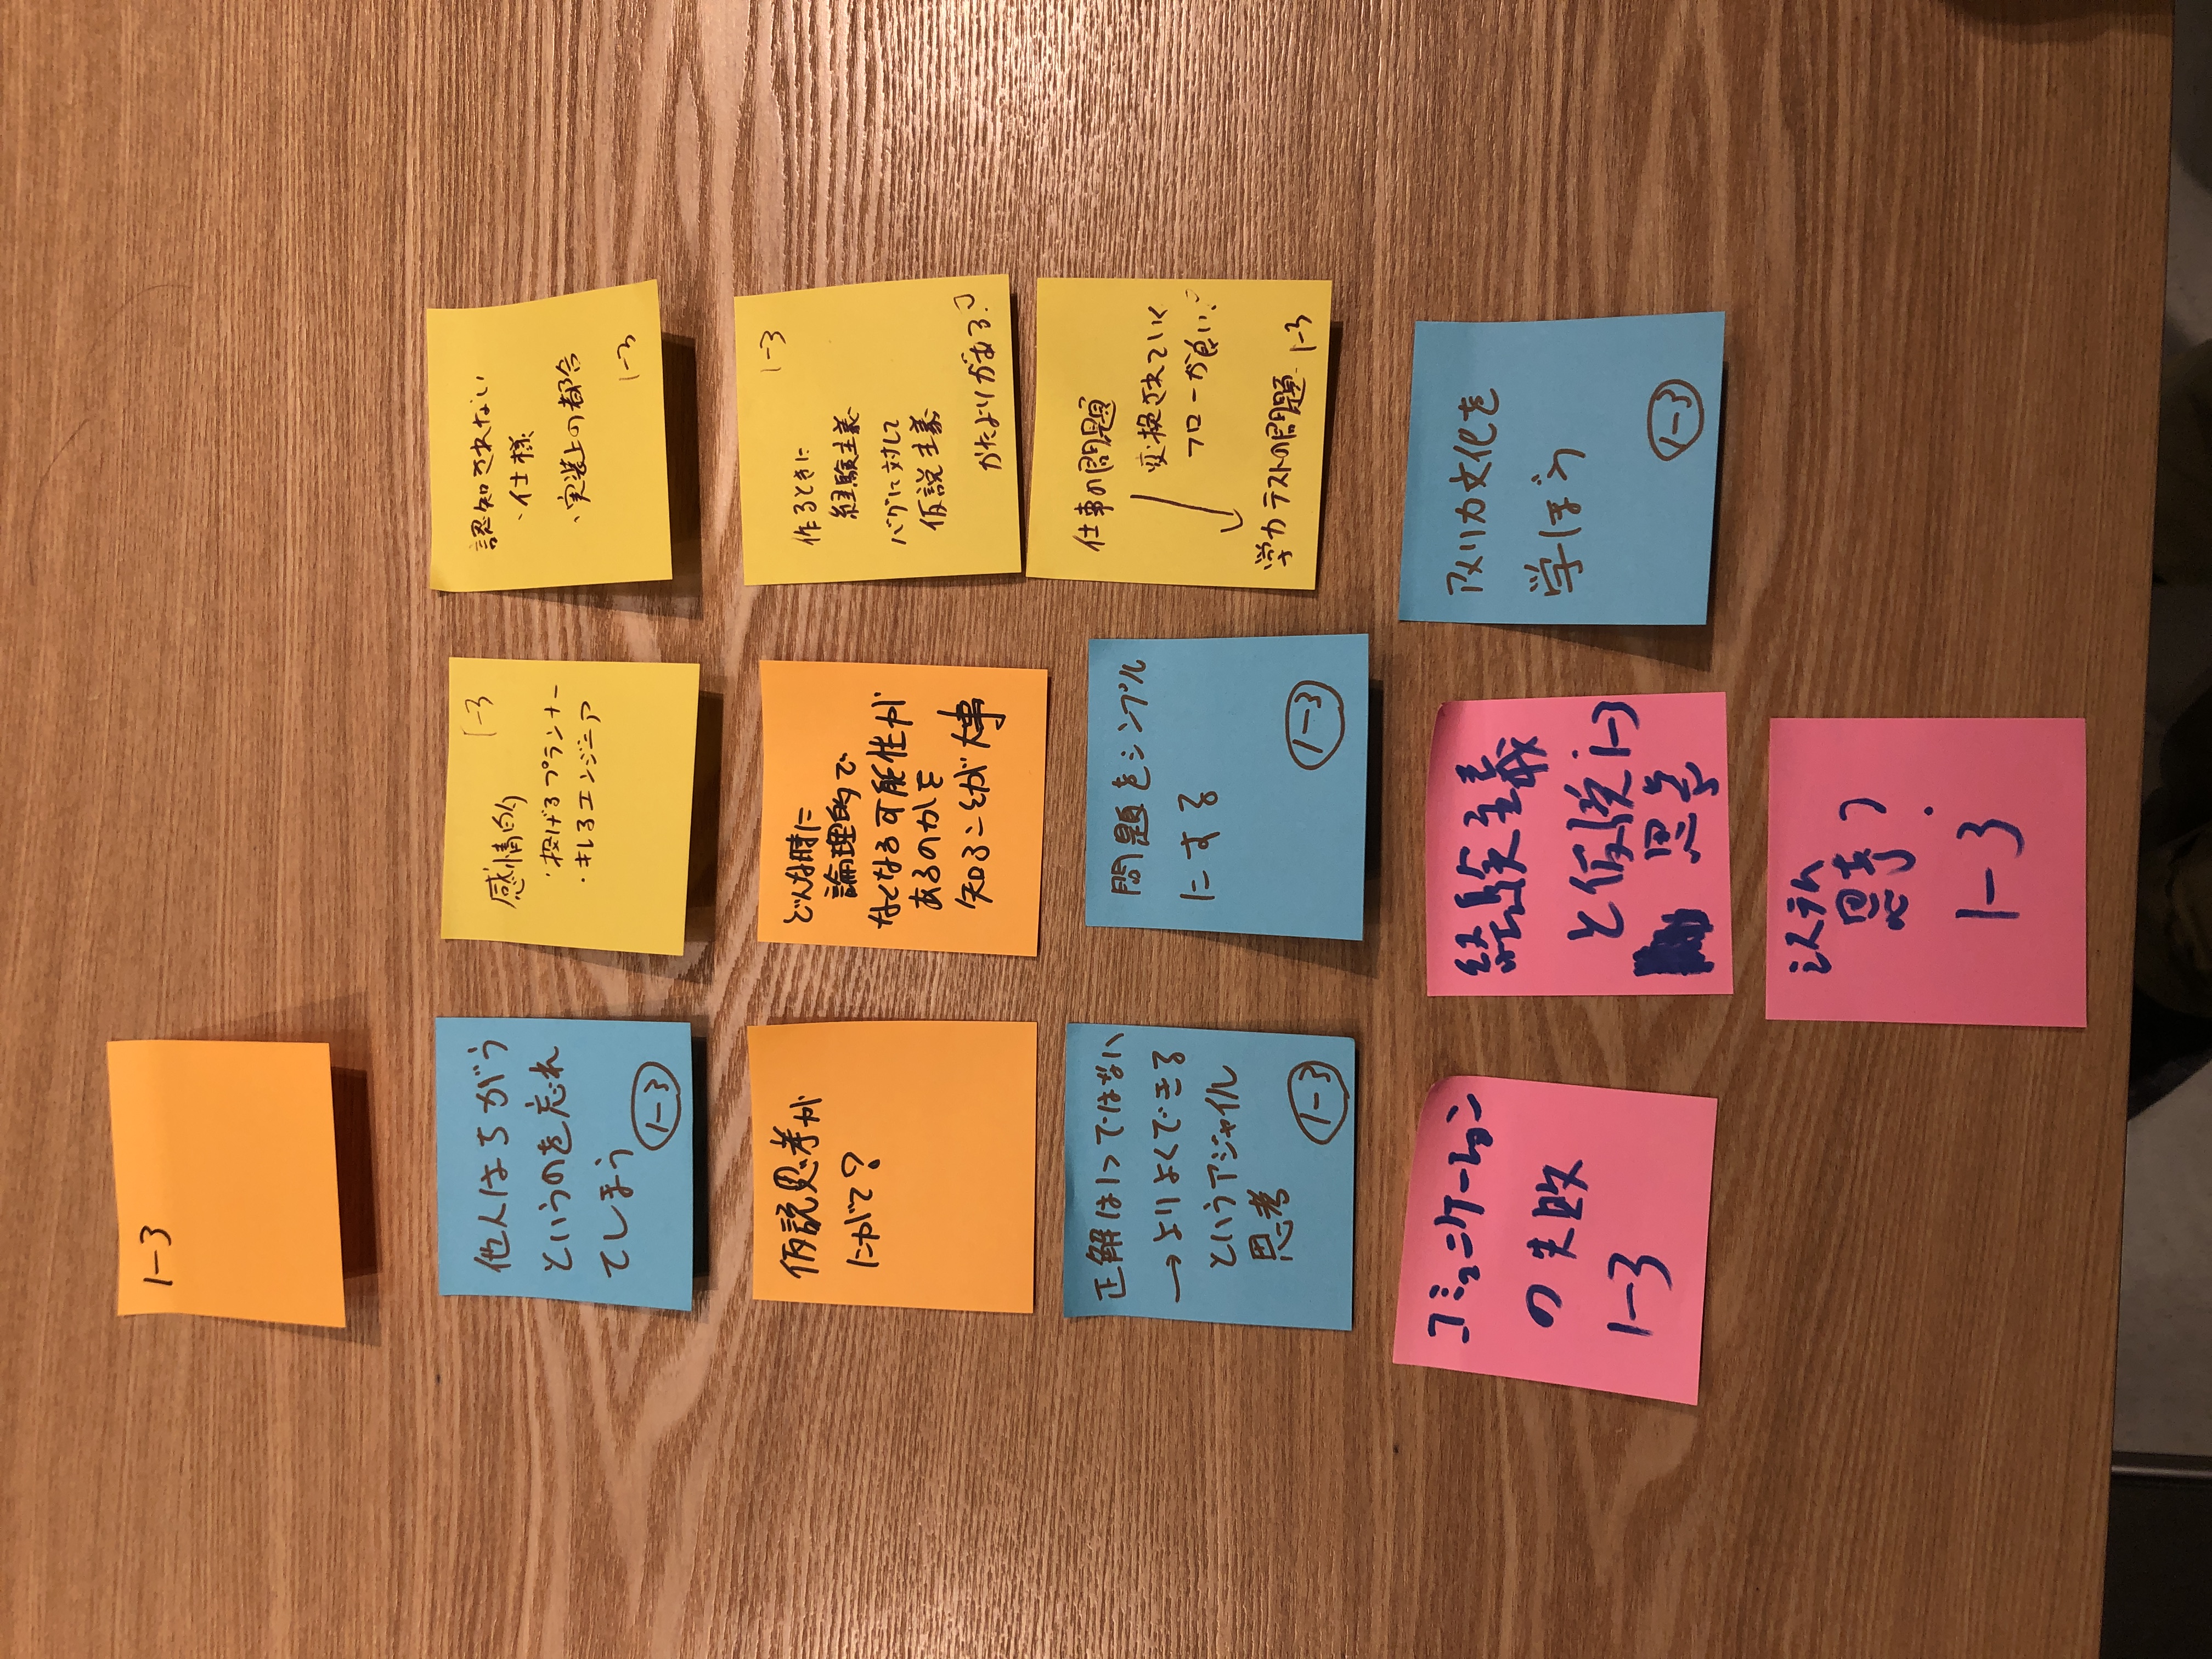 1-3
他人はちがう
というのを忘れ
てしまう
1-3
1-3
感情的
・投げるプランナー
・キレるエンジニア
認知されない
・仕様
・実装上の都合
1-3
仮説思考が
にがて?
どんな時に
論理的で
なくなる可能性が
あるのかを
知ることが大事
1-3
作るときに
経験主義
バグに対して
仮説主義
かたよりがある?
正解は1つではない
→よりよくできる
というアジャイル
思考
1-3
問題をシンプル
にする
1-3
仕事の問題
変換されていく
フローが良い?
学力テストの問題
1-3
コミュニケーション
の失敗
1-3
経験主義
と仮説 1-3
思考
アメリカ文化を
学ぼう
1-3
システム
思考?
1-3